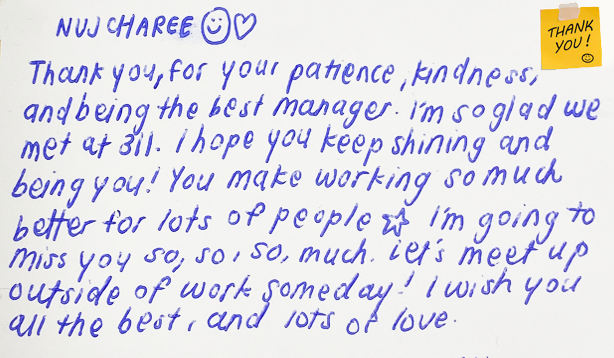 NUJ CHAREE ☺♡
THANK
YOU!
☺
Thank you, for your patience, kindness,
and being the best manager. I'm so glad we
met at 311. I hope you keep shining and
being you! You make working so much
better for lots of people ☆ I'm going to
miss you so, so, so, much. Let's meet up
outside of work someday! I wish you
all the best, and lots of love.